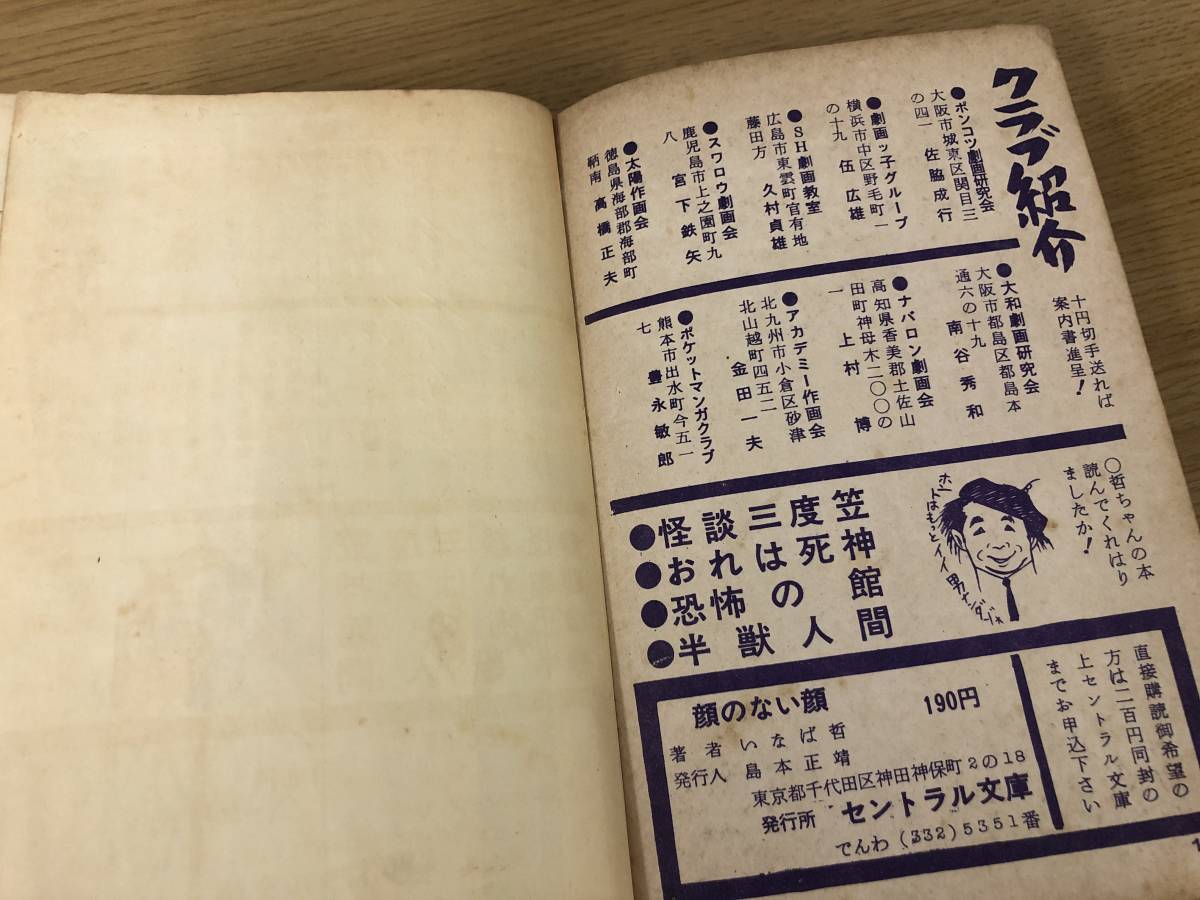 クラブ紹介
十円切手送れば
案内書進呈！
●ポンコツ劇画研究会
大阪市城東区関目三
の四一 佐脇成行
●劇画ッ子グループ
横浜市中区野毛町一
の十九 伍広雄
●SH劇画教室
広島市東雲町官有地
藤田方 久村貞雄
●スワロウ劇画会
鹿児島市上之園町九
八 宮下鉄矢
●太陽作画会
徳島県海部郡海部町
鞆南 高橋正夫
●大和劇画研究会
大阪市都島区都島本
通六の十九 南谷秀和
●ナバロン劇画会
高知県香美郡土佐山
田町神母木二〇〇の
一 上村博
●アカデミー作画会
北九州市小倉区砂津
北山越町四五二
金田一夫
●ポケットマンガクラブ
熊本市出水町今五一
七 豊永敏郎
〇哲ちゃんの本
読んでくれはり
ましたか！
ホントはもっとイイ男ナンダゾ
●怪談三度笠
●おれは死神
●恐怖の館
●半獣人間
直接購読御希望の
方は二百円同封の
上セントラル文庫
までお申込下さい
顔のない顔 190円
著者 いなば哲
発行人 島本正靖
東京都千代田区神田神保町2の18
発行所 セントラル文庫
でんわ (332) 5351番